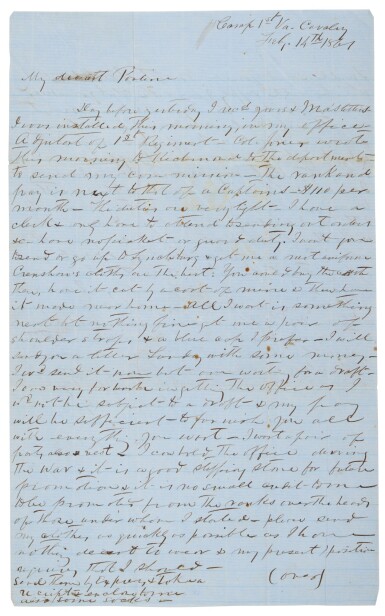 Camp 1st Va. Cavalry
Feby. 14th 186
My dearest Pauline
Day before yesterday I
I was installed this morning in my office
Adjutant of 1st Regiment - Col wrote
this morning to Richmond to the department
to send my commission - The rank and
pay is next to that of a Captains - $110 per
month - The duties are very light - I have a
clerk & only have to attend to sending out orders
& have no picket or guard duty. I want you
to send or go up to Lynchburg & get me a neat uniform
Crenshaw's cloth, the best: You could buy the cloth
there, have it cut by a coat of mine &
it made near home. All I want is something
neat but nothing fine get me a pair of
shoulder straps & a blue cap I prefer - I will
send you a letter with some money -
I would send it now but am waiting for a draft.
I was very fortunate in getting the office as I
will not be subject to a draft & my pay
will be sufficient to furnish you all
with everything you want - I want a pair of
pants also next I can hold the office during
the war & it is a good stepping stone for future
promotion & it is no small matter to me
to be promoted from the ranks over the heads
of those under whom I started - please send
my clothes as quickly as possible as I have
nothing decent to wear & my present position
requires that I should -
send them by express & take a
receipt
(over)